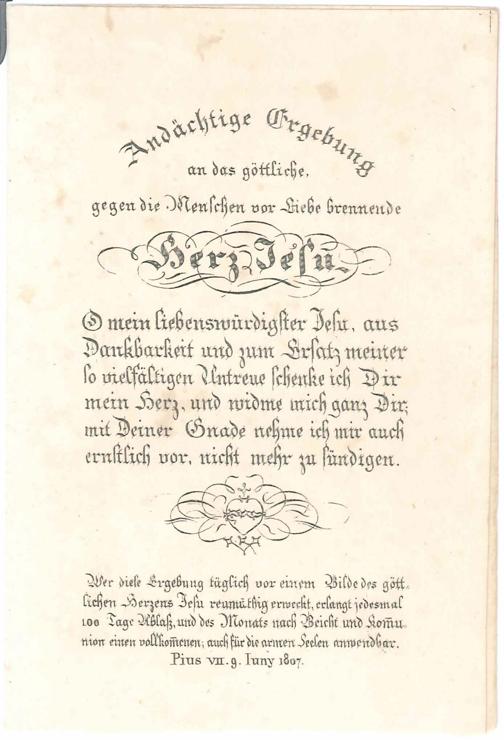 Andächtige Ergebung
an das göttliche,
gegen die Menschen vor Liebe brennende
Herz Jesu.
O mein liebenswürdigster Jesu, aus
Dankbarkeit und zum Ersatz meiner
so vielfältigen Untreue schenke ich Dir
mein Herz, und widme mich ganz Dir;
mit Deiner Gnade nehme ich mir auch
ernstlich vor, nicht mehr zu sündigen.
Wer diese Ergebung täglich vor einem Bilde des gött-
lichen Herzens Jesu reumüthig erweckt, erlangt jedesmal
100 Tage Ablaß, und des Monats nach Beicht und Kom̄u-
nion einen vollkom̄enen; auch für die armen Seelen anwendbar.
Pius VII. 9. Juny 1807.